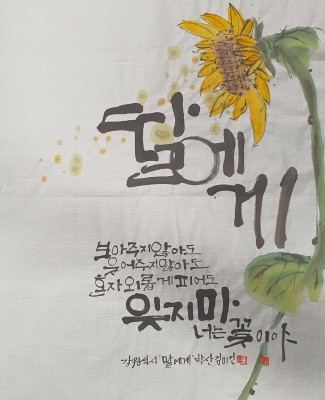 딸에
게
보아주지않아도
웃어주지않아도
혼자외롭게피어도
잊지마
너는 꽃이야
강원석시 '딸에게'